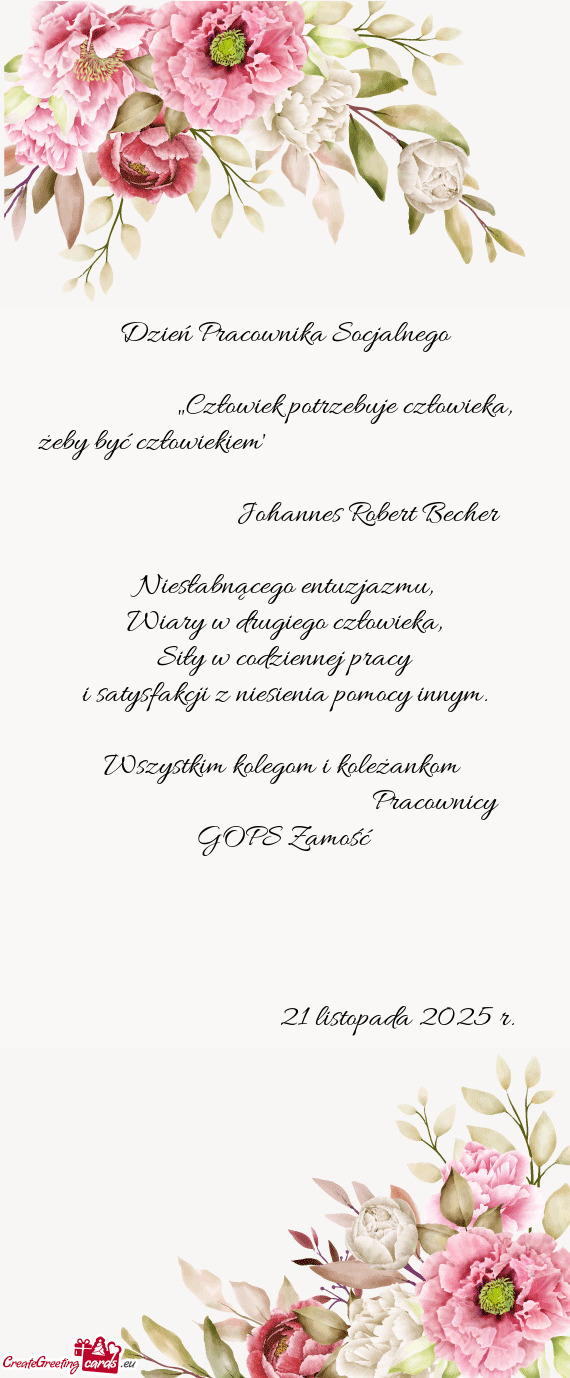 Dzień Pracownika Socjalnego
„Człowiek potrzebuje człowieka,
żeby być człowiekiem'
Johannes Robert Becher
Niesłabnącego entuzjazmu,
Wiary w drugiego człowieka,
Siły w codziennej pracy
i satysfakcji z niesienia pomocy innym.
Wszystkim kolegom i koleżankom
Pracownicy
GOPS Zamość
21 listopada 2025 r.
CreateGreeting cards .eu